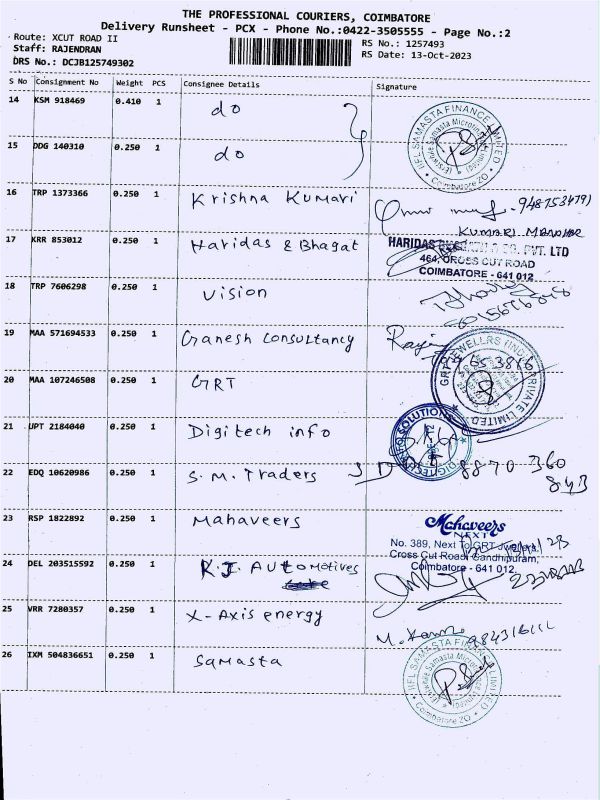 THE PROFESSIONAL COURIERS, COIMBATORE
Delivery Runsheet - PCX - Phone No.:0422-3505555 - Page No.:2
Route: XCUT ROAD II
RS No.: 1257493
Staff: RAJENDRAN
RS Date: 13-Oct-2023
DRS No.: DCJB125749302
S No Consignment No Weight PCS Consignee Details Signature
14 KSM 918469 0.410 1 do
IIFL SAMASTA FINANCE LIMITED
Coimbatore ZO
15 DDG 140310 0.250 1 do
16 TRP 1373366 0.250 1 Krishna Kumari
KUMARI
17 KRR 853012 0.250 1 Haridas & Bhagat
HARIDAS & CO. PVT. LTD
464, CROSS CUT ROAD
COIMBATORE - 641 012
18 TRP 7606298 0.250 1 Vision
19 MAA 571694533 0.250 1 Ganesh Consultancy
20 MAA 107246508 0.250 1 GRT
GRT JEWELLRS (INDIA) PRIVATE LIMITED
21 UPT 2184040 0.250 1 Digitech info
22 EDQ 10620986 0.250 1 S.M. Traders
8870 360
843
23 RSP 1822892 0.250 1 Mahaveers
Mahaveers
NEXT
No. 389, Next To GRT Jwellers,
Cross Cut Road, Gandhipuram,
Coimbatore - 641 012.
24 DEL 203515592 0.250 1 K.J. Automotives
25 VRR 7280357 0.250 1 X-Axis energy
26 IXM 504836651 0.250 1 Samasta
IIFL SAMASTA FINANCE LIMITED
Coimbatore ZO